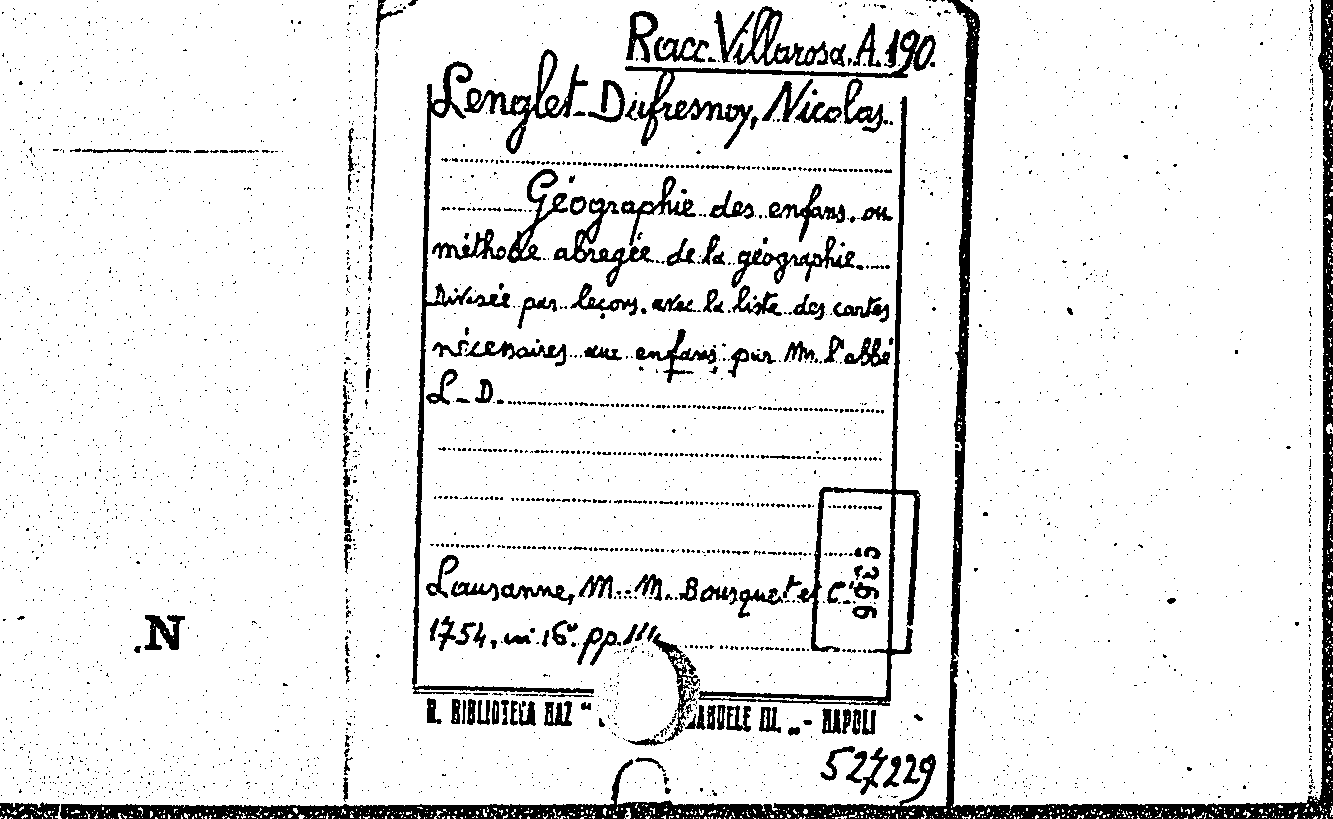 Racc. Villarosa. A. 190.
Lenglet-Dufresnoy, Nicolas.
Géographie des enfans. ou
méthode abregée de la géographie.
Divisée par leçons. avec la liste des cartes
nécessaires aux enfans par Mr. l'abbé
L. D.
5366
Lausanne, M. M. Bousquet et C.ie
1754. in 16°. pp.
N
R. BIBLIOTECA NAZ " ANUELE III. „ - NAPOLI
527229